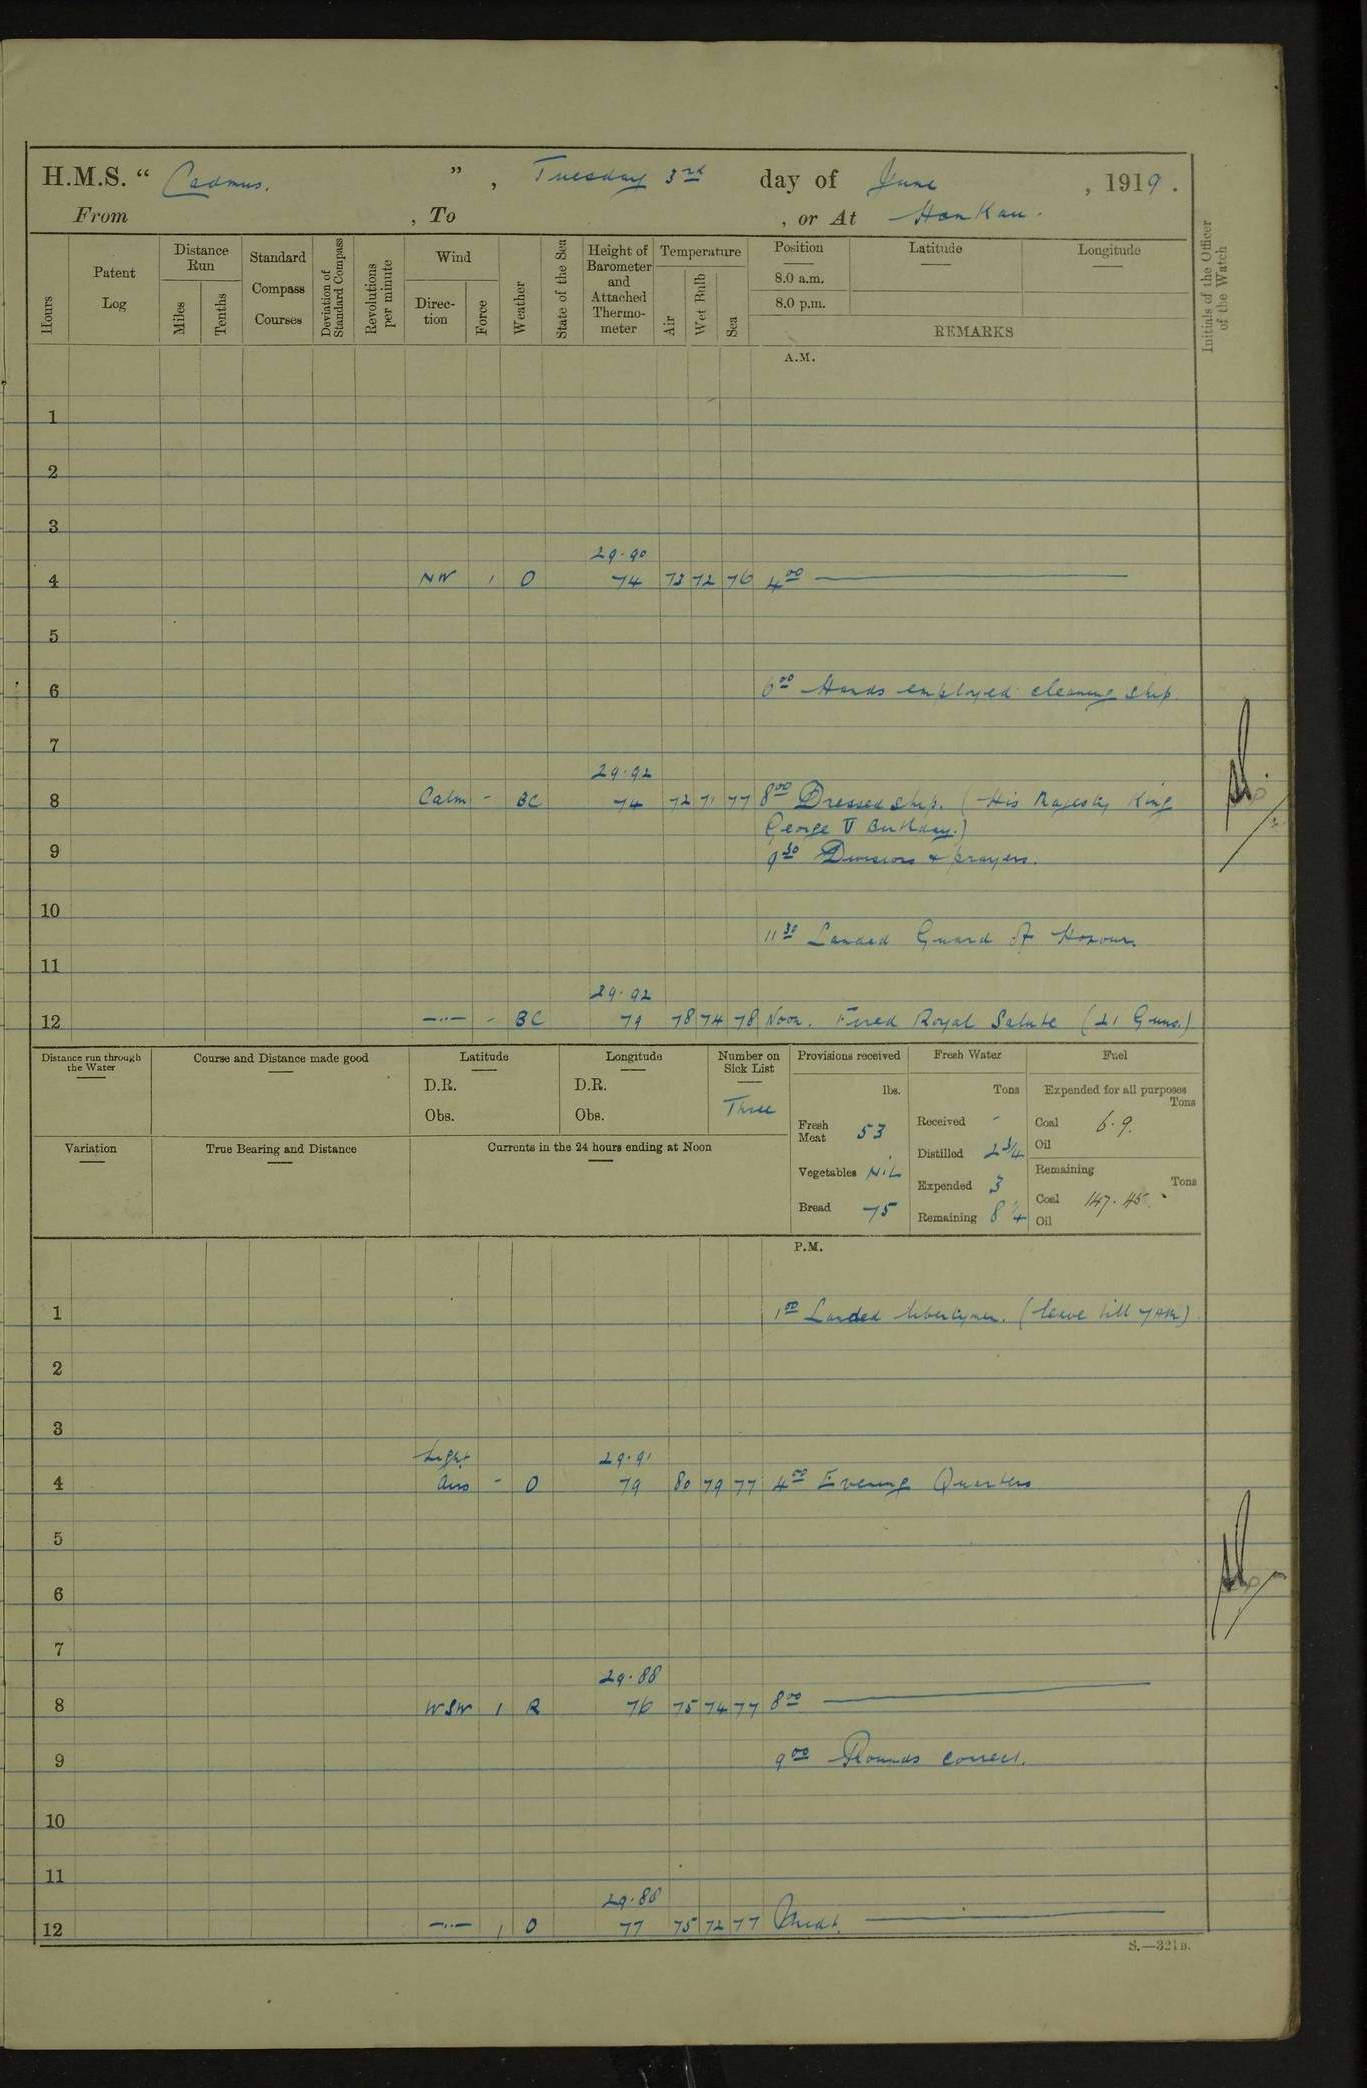 H.M.S. “ Cadmus. ” , Tuesday 3rd day of June , 1919.
From , To , or At Hankau.
Hours
Patent Log
Distance Run
Miles
Tenths
Standard Compass Courses
Deviation of Standard Compass
Revolutions per minute
Wind
Direction
Force
Weather
State of the Sea
Height of Barometer and Attached Thermometer
Temperature
Air
Wet Bulb
Sea
Position
8.0 a.m.
8.0 p.m.
Latitude
Longitude
REMARKS
Initials of the Officer of the Watch
A.M.
1
2
3
29.90
4 NW 1 O 74 73 72 76 4 00
5
6 6 00 Hands employed cleaning ship.
7
29.92
8 Calm - BC 74 72 71 77 8 00 Dressed ship. (His Majesty King
George V Birthday.)
9 9 30 Divisions & prayers.
10
11 30 Landed Guard of Honour.
11
29.92
12 —"— - BC 79 78 74 78 Noon. Fired Royal Salute (21 Guns.)
Distance run through the Water
Course and Distance made good
Latitude
D.R.
Obs.
Longitude
D.R.
Obs.
Number on Sick List
Three
Variation
True Bearing and Distance
Currents in the 24 hours ending at Noon
Provisions received
lbs.
Fresh Meat 53
Vegetables NiL
Bread 75
Fresh Water
Tons
Received -
Distilled 2 3/4
Expended 3
Remaining 8 1/4
Fuel
Expended for all purposes
Tons
Coal 6.9.
Oil
Remaining
Tons
Coal 147.45
Oil
P.M.
1 1 00 Landed libertymen. (leave till 7 AM)
2
3
Light 29.91
4 airs - O 79 80 79 77 4 00 Evening Quarters
5
6
7
29.88
8 WSW 1 R 76 75 74 77 8 00
9 9 00 Rounds correct.
10
11
29.88
12 —"— 1 O 77 75 72 77 Midt.
S.—321B.